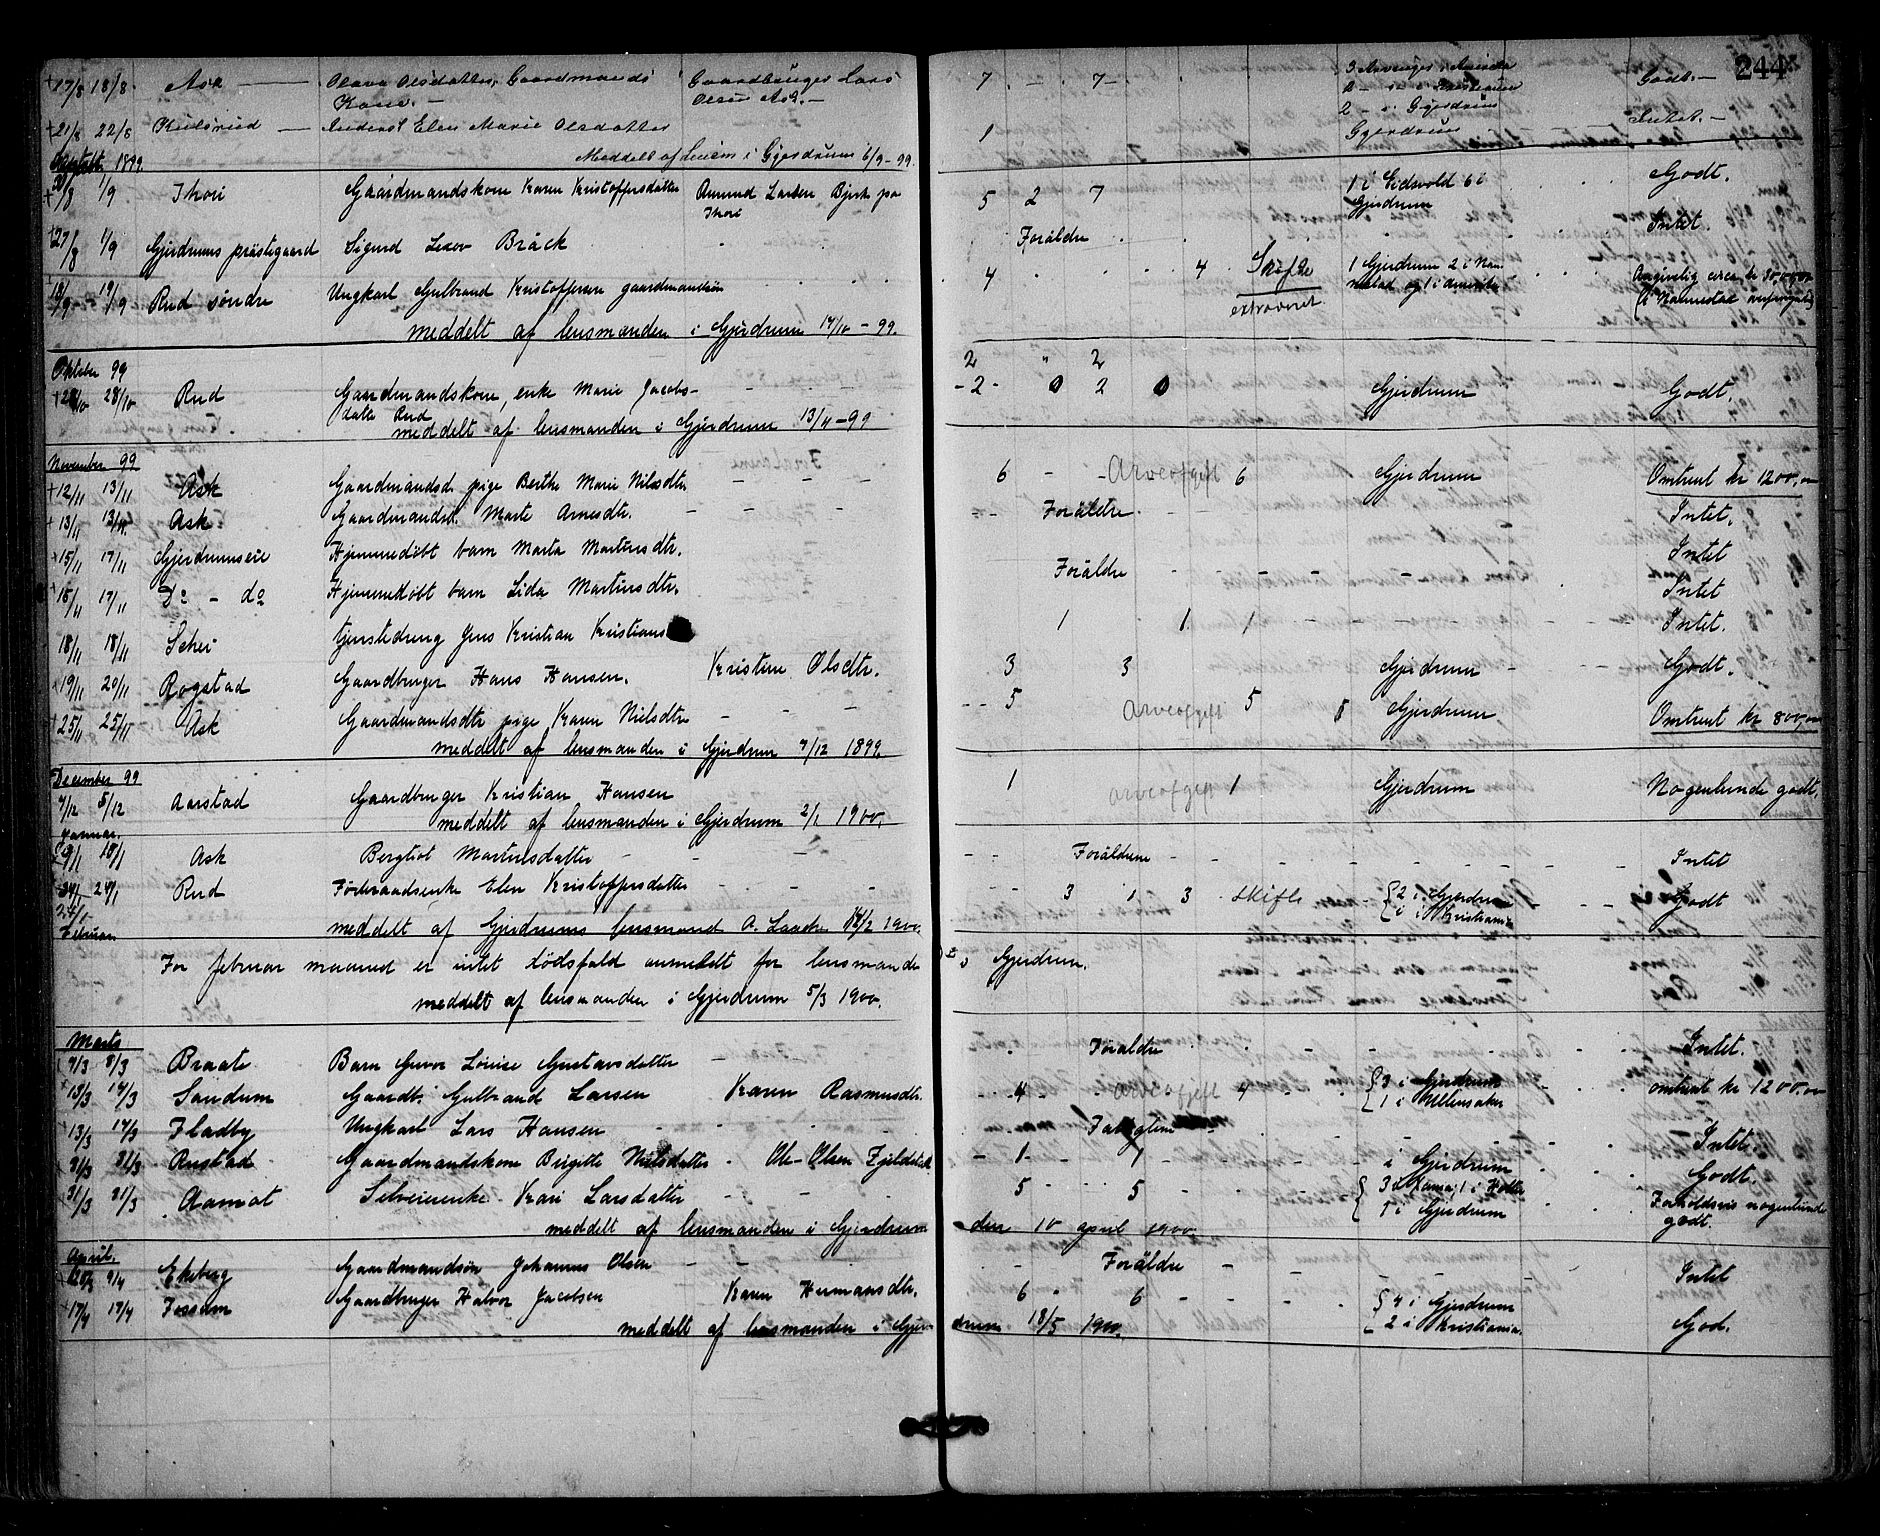 244
+17/8 18/8. Ask — Olava Olsdatter, Gaardmands Gaardbruger Lars 7 - - 7 - 3 i Amerika Godt. -
Kone. - Olsen Ask. - 2 - i Kristiania
2 - i Gjerdrum
+21/8 22/8 Kulsrud — Inderst Elen Marie Olsdatter 1 Gjerdrum Intet. -
Meddelt af lensm i Gjerdrum 6/9 - 99.
1899.
30/8 1/9 Thori Gaardmandskone Karen Kristoffersdatter Amund Larsen Bjerk pa 5 2 7 1 i Eidsvold 6 i Godt.
Thori Gjerdrum
+27/8 1/9 Gjerdrums præstegaard Sigurd Bräck Foräldre Intet.
18/9 19/9 Rud søndre Ungkarl Gulbrand Kristoffersen gaardmandsøn 4 4 Skifte 1 Gjerdrum 2 i Nan- Angivelig circa kr 30,000,00
extraveret nestad og 1 i Amerika
meddelt af lensmanden i Gjerdrum 14/10 - 99.
Oktober 99 2 " 2
28/10 28/10 Rud Gaardmandskone, enke Marie Jacobs- - 2 - 0 2 0 Gjerdrum Godt.
datter Rud
meddelt af lensmanden i Gjerdrum 13/11 - 99
November 99
+12/11 13/11 Ask Gaardmandsd pige Berthe Marie Nilsdtr - - - 6 - - Arveafgift 6 Gjerdrum Omtrent kr 1200,00
+13/11 13/11 Ask Gaardmandsd. Marte Arnesdtr. - - - Foräldre Intet.
+15/11 17/11 Gjerdrumseie Hjemmedöbt barn Marta Martinsdtr. Intet
+15/11 17/11 Do - do Hjemmedöbt barn Lida Martinsdtr. Foräldre - - - - Intet
18/11 18/11 Schei tjenstedreng Jens Kristian Kristians 1 1 1 - - - Intet.
+19/11 20/11 Rogstad Gaardbruger Hans Hansen. Kristine Olsdtr. 3 3 Gjerdrum - - - Godt.
+25/11 25/11 Ask Gaardmandsdtr pige Karen Nilsdtr - - - 5 Arveafgift 5 Gjerdrum Omtrent kr 800,00
meddelt af lensmanden i Gjerdrum 4/12 1899.
December 99
4/12 5/12 Aarstad Gaardbruger Kristian Hansen 1 arveafgift 1 Gjerdrum Nogenlunde godt.
meddelt af lensmanden i Gjerdrum 2/1 1900.
Januar.
9/1 10/1 Ask Bergliot Martinsdatter - - - Foräldrene - - - Intet
24/1 24/1 Rud Föderaadsenke Elen Kristoffersdatter - - - 3 1 3 skifte 2 i Gjerdrum Godt
24/1 1 i Kristiania
meddelt af Gjerdrums lensmand A. Laache 14/2 1900.
Februar
For februar maaned er intet dödsfald anmeldt for lensmanden i Gjerdrum.
meddelt af lensmanden i Gjerdrum 5/3 1900.
Marts
4/3 8/3 Braate Barn Guvor Louise Gustavsdatter - Foräldre - - - Intet.
13/3 14/3 Sandum Gaardb. Gulbrand Larsen Karen Rasmusdtr. 4 - Arveafgift 4 3 i Gjerdrum omtrent kr 1200,00
1 i Ullensaker
+13/3 14/3 Fladby Ungkarl Lars Hansen - - - Intet.
31/3 31/3 Rustad Gaardmandskone Birgitte Nilsdatter Ole Olsen Fjeldstad - 1 - 1 i Gjerdrum Godt.
31/3 31/3 Aamot Selveierenke Kari Larsdatter 5 5 3 i 1 i Forholdsvis nogenlunde
1 i Gjerdrum godt.
meddelt af lensmanden i Gjerdrum den 10 april 1900.
April.
9/4 Ekeberg Gaardmandsön Johannes Olsen - - Foräldre - - - Intet
+17/4 17/4 Fossum Gaardbruger Halvor Jacobsen Karen Hermansdtr. 6 6 4 i Gjerdrum God.
2 i Kristiania.
meddelt af lensmanden i Gjerdrum 18/5 1900.